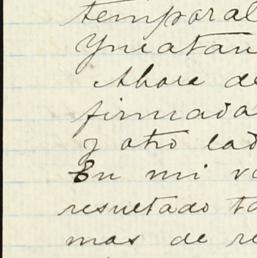 temporal
Yucatan
Ahora de
firmada
y otro lad
En mi va
resultado ta
mas de re